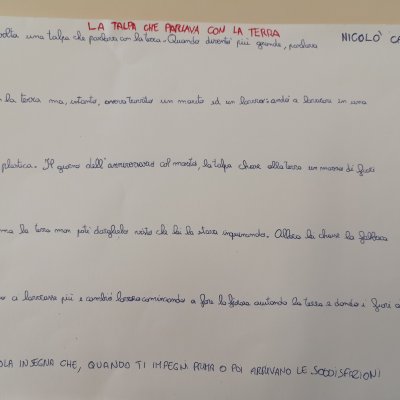 LA TALPA CHE PARLAVA CON LA TERRA
NICOLO' CA
volta una talpa che parlava con la terra. Quando diventò più grande, parlava
la terra ma, intanto, aveva trovato un marito ed un lavoro: andò a lavorare in una
plastica. Il giorno dell'anniversario col marito, la talpa chiese alla terra un mazzo di fiori
ma la terra non poté darglielo visto che lei la stava inquinando. Allora la chiuse la fabbrica
a lavorare più e cambiò lavoro cominciando a fare la aiutando la terra e dando i fiori a
OLA INSEGNA CHE, QUANDO TI IMPEGNI PRIMA O POI ARRIVANO LE SODDISFAZIONI